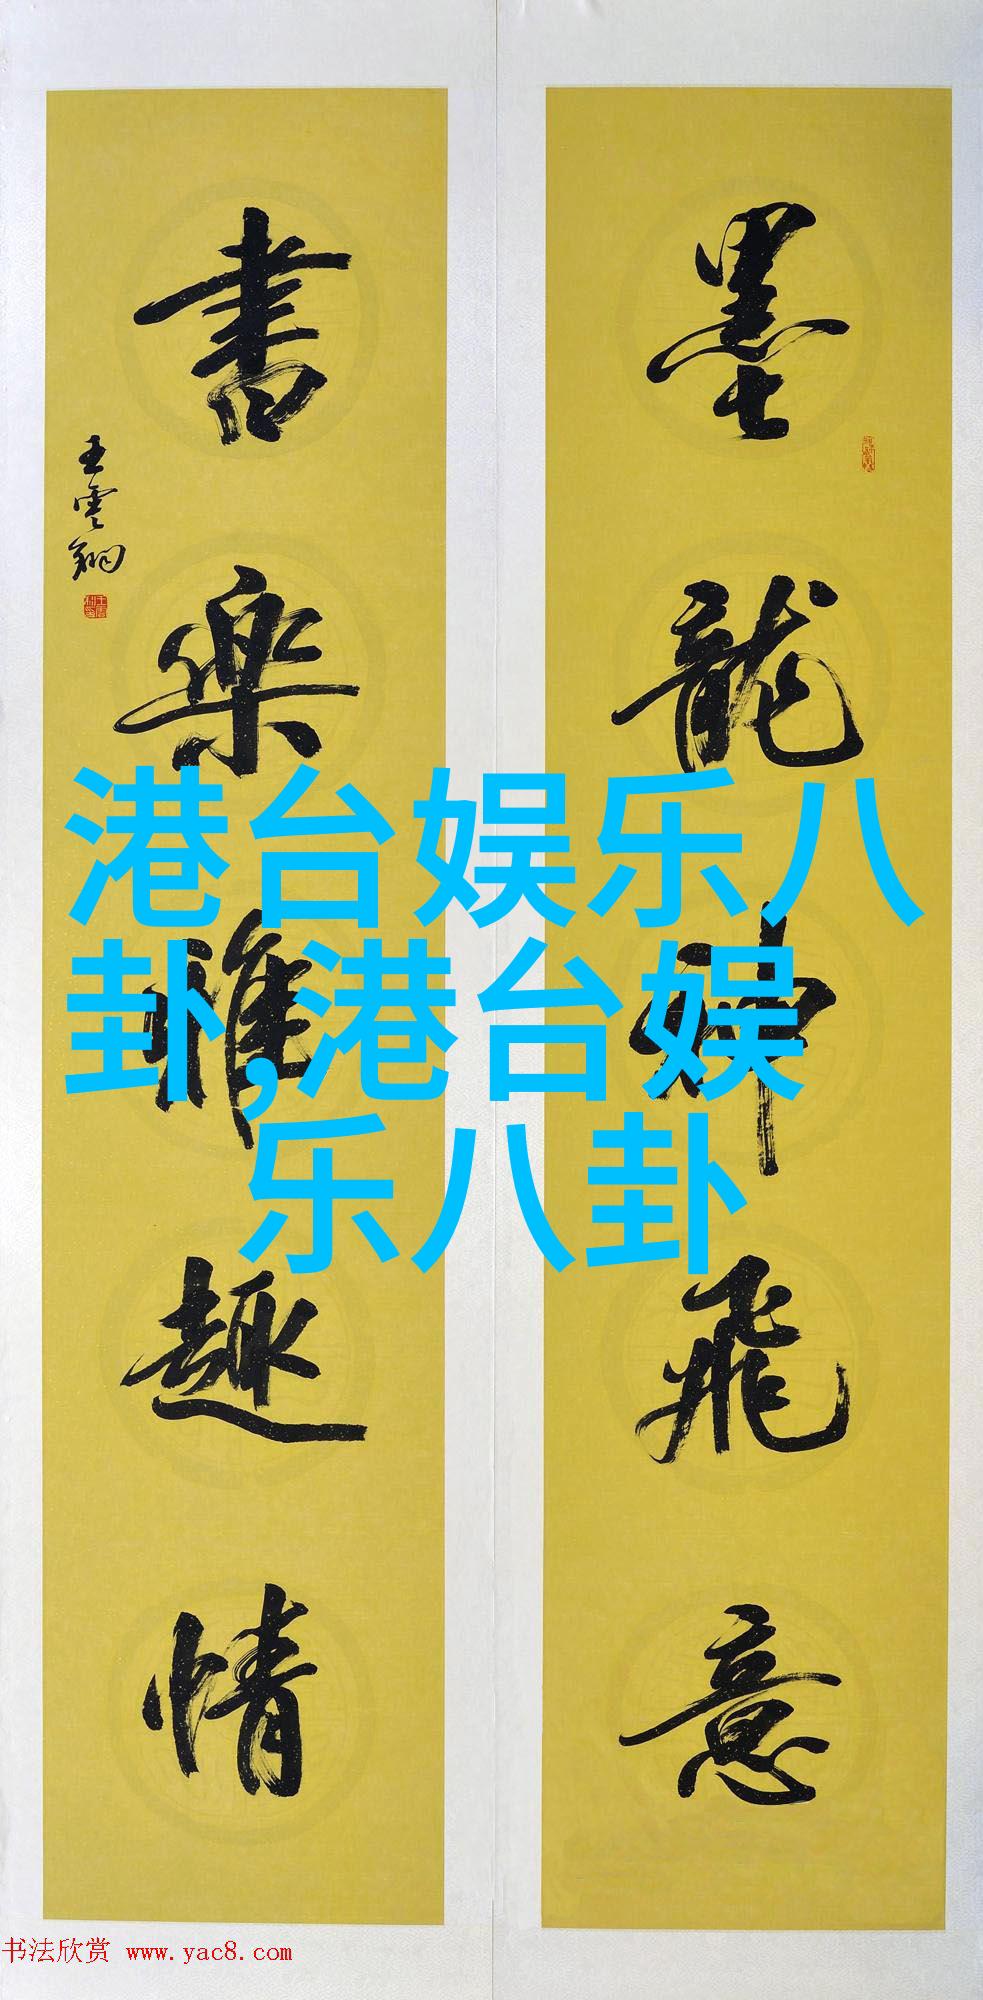 墨龍神飛意
書樂雅趣情
王雲翔
港台娱乐八
卦,港台娱
乐八卦
书法欣赏 www.yac8.com